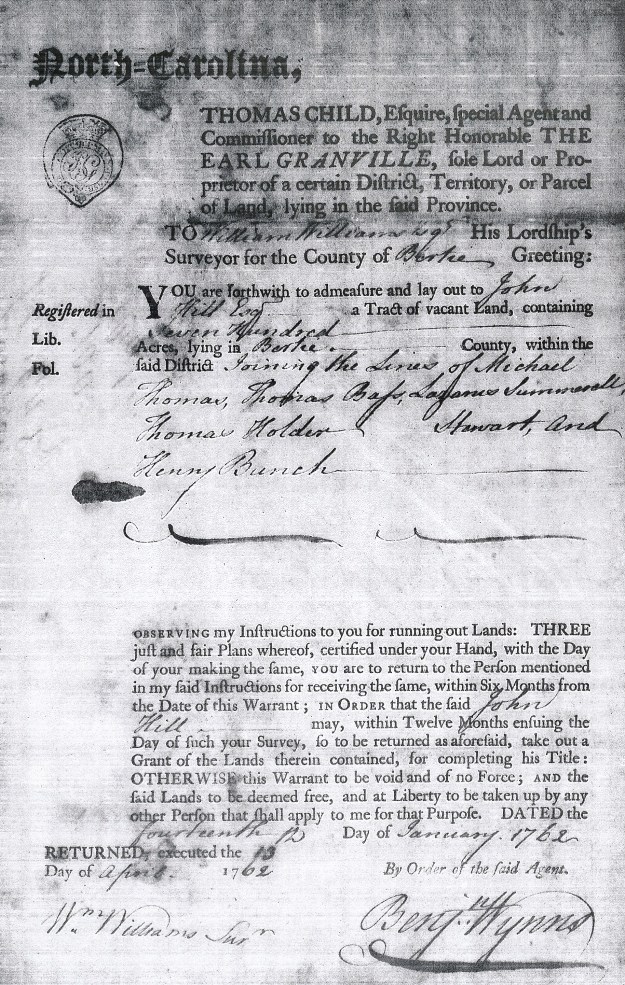 North-Carolina,
THOMAS CHILD, Eſquire, ſpecial Agent and
Commiſſioner to the Right Honorable THE
EARL GRANVILLE, ſole Lord or Pro-
prietor of a certain Diſtrict, Territory, or Parcel
of Land, lying in the ſaid Province.
TO William Williams Esqr His Lordſhip's
Surveyor for the County of Bertie Greeting:
YOU are forthwith to admeaſure and lay out to John
Hill Esqr a Tract of vacant Land, containing
Seven Hundred
Acres, lying in Bertie County, within the
ſaid Diſtrict Joining the Lines of Michael
Thomas, Thomas Baſs, Lazarus Summerell,
Thomas Holder Stewart, And
Henry Bunch
Regiſtered in
Lib.
Fol.
OBSERVING my Inſtructions to you for running out Lands: THREE
juſt and fair Plans whereof, certified under your Hand, with the Day
of your making the ſame, YOU are to return to the Perſon mentioned
in my ſaid Inſtructions for receiving the ſame, within Six Months from
the Date of this Warrant; IN ORDER that the ſaid John
Hill may, within Twelve Months enſuing the
Day of ſuch your Survey, ſo to be returned as aforeſaid, take out a
Grant of the Lands therein contained, for completing his Title:
OTHERWISE this Warrant to be void and of no Force; AND the
ſaid Lands to be deemed free, and at Liberty to be taken up by any
other Perſon that ſhall apply to me for that Purpoſe. DATED the
fourteenth Day of January. 1762
RETURNED, executed the 13
Day of April. 1762
By Order of the ſaid Agent.
Wm Williams Surr
Benjn Wynns